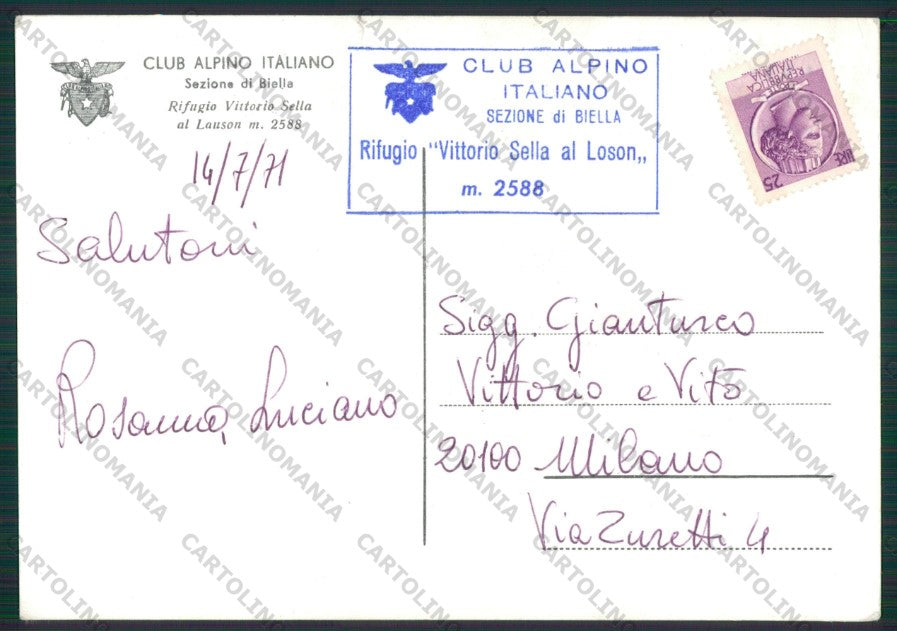 CLUB ALPINO ITALIANO
Sezione di Biella
Rifugio Vittorio Sella
al Lauson m. 2588
14/7/71
Salutoni
Rosanna, Luciano
CLUB ALPINO
ITALIANO
SEZIONE di BIELLA
Rifugio "Vittorio Sella al Loson„
m. 2588
REPUBBLICA
ITALIANA
LIRE
25
Sigg. Gianturco
Vittorio e Vito
20100 Milano
Via Zuretti 4
CARTOLINOMANIA